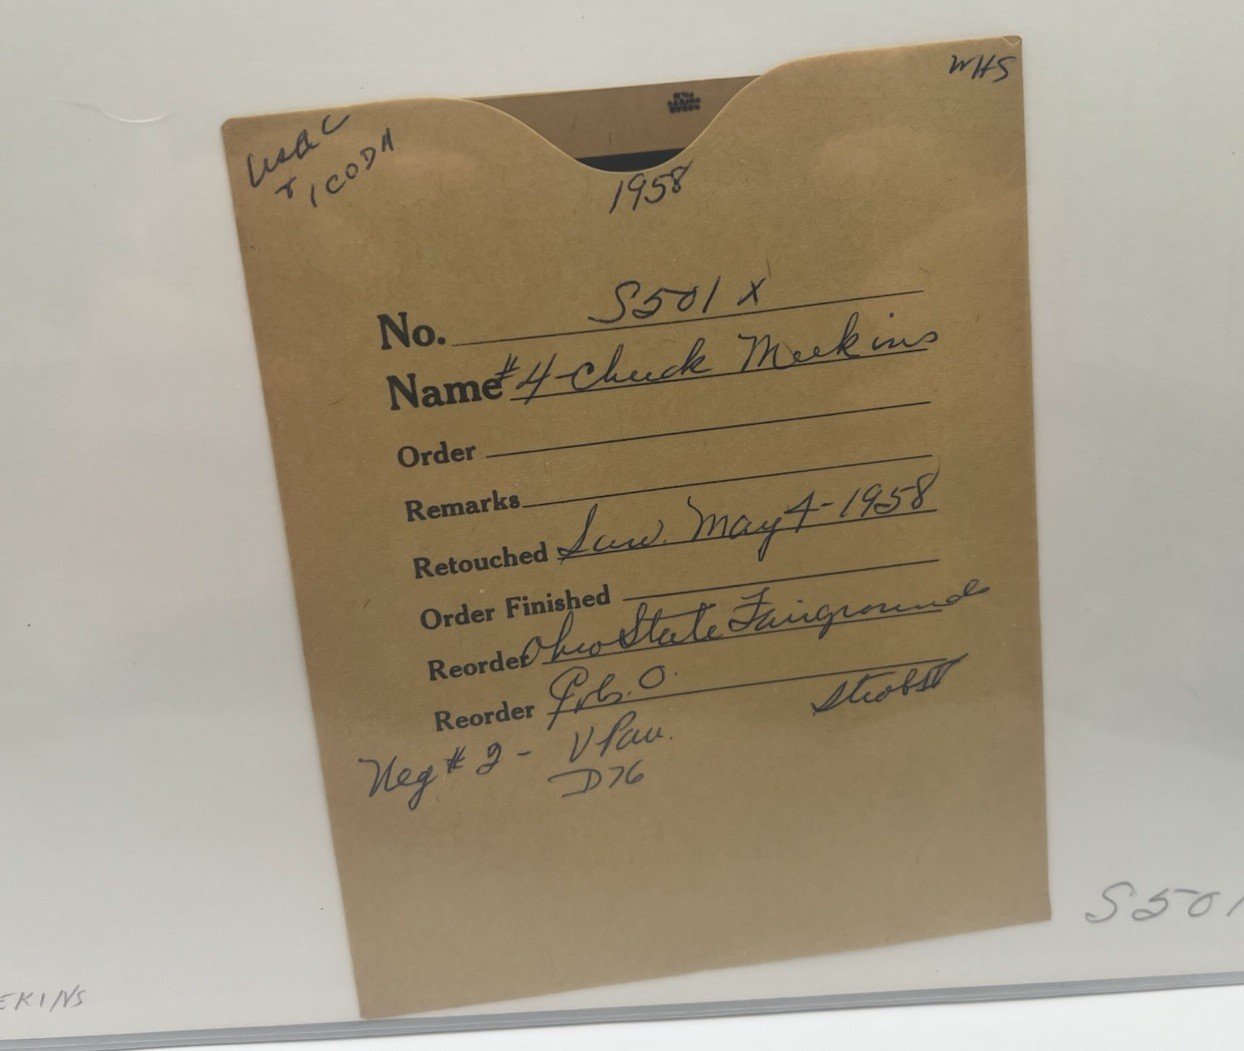 WHS
USAC
1958
No. S501 X
Name #4-Chuck Meekins
Order
Remarks
Retouched Sun. May 4-1958
Order Finished
Reorder Ohio State Fairgrounds
Reorder Cols. O. Strobe
Neg # 2 - V Pan.
D76
S501
EKINS